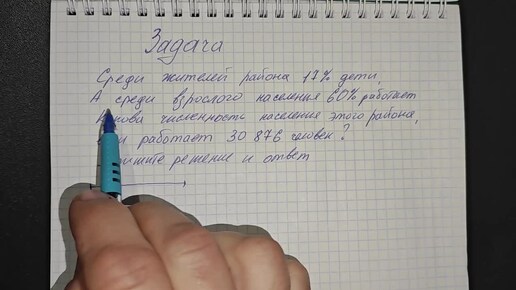 Задача
Среди жителей района 17% дети,
А среди взрослого населения 60% работает
численность населения этого района,
работает 30 876 человек?
решение и ответ